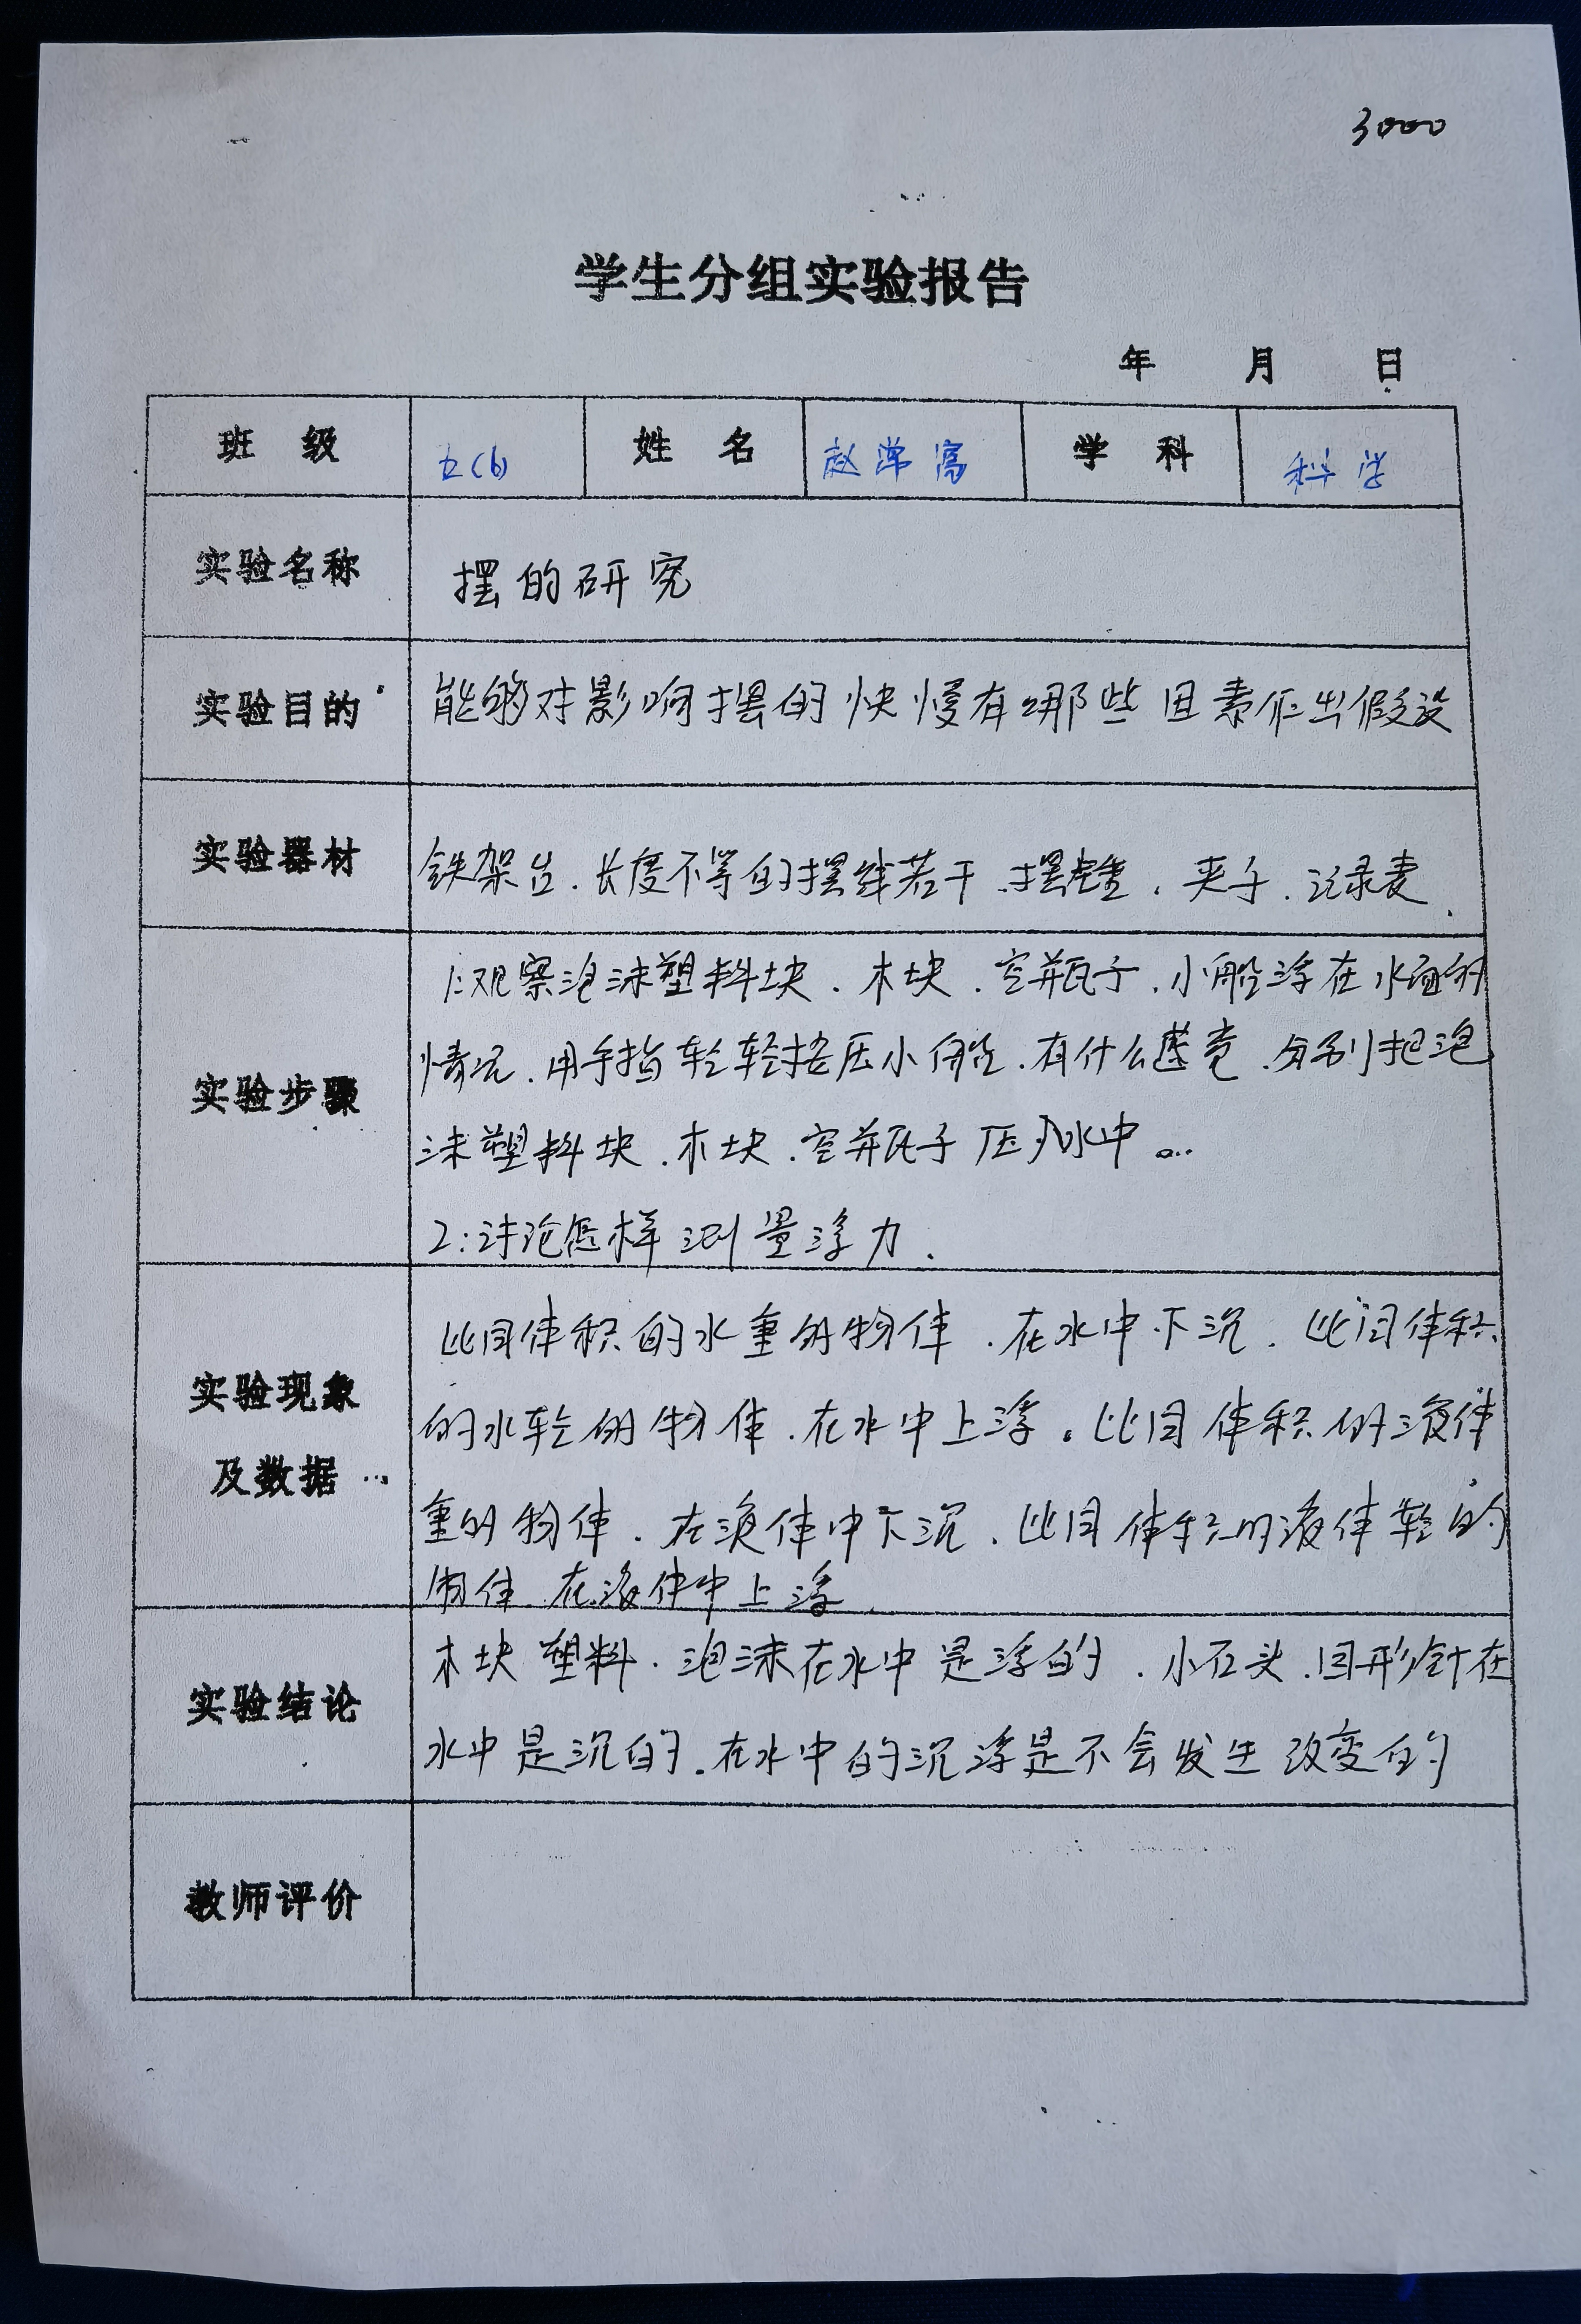 3000
学生分组实验报告
年 月 日
班 级 五(6) 姓 名 赵 学 科 科学
实验名称 摆的研究
实验目的 能够对影响摆的快慢有哪些因素作出假设
实验器材 铁架台、长度不等的摆线若干、摆锤、夹子、记录表、
1:观察泡沫塑料块、木块、空瓶子、小船浮在水面的
情况、用手指轻轻按压小船、有什么感觉、分别把泡
实验步骤
沫塑料块、木块、空瓶子压入水中。..
2:讨论怎样测量浮力、
比同体积的水重的物体、在水中下沉、比同体积
实验现象
的水轻的物体、在水中上浮。比同体积的液体
及数据
重的物体、在液体中下沉、比同体积的液体轻的
物体 在液体中上浮、
木块 塑料、泡沫在水中是浮的、小石头、回形针在
实验结论
水中是沉的。在水中的沉浮是不会发生改变的
教师评价